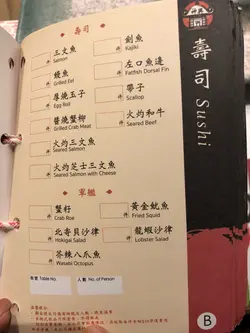 壽司
三文魚
Salmon
件
劍魚
Kajiki
件
鰻魚
Grilled Eel
件
左口魚邊
Fatfish Dorsal Fin
件
厚燒玉子
Egg Roll
件
帶子
Scallop
件
醬燒蟹柳
Grilled Crab Meat
件
火灼和牛
Seared Beef
件
火灼三文魚
Seared Salmon
件
火灼芝士三文魚
Seared Salmon with Cheese
件
軍艦
蟹籽
Crab Roe
件
黃金魷魚
Fried Squid
件
北寄貝沙律
Hokigai Salad
件
龍蝦沙律
Lobster Salad
件
芥辣八爪魚
Wasabi Octopus
件
枱號 Table No.
人數 No. of Person
壽司 Sushi
B